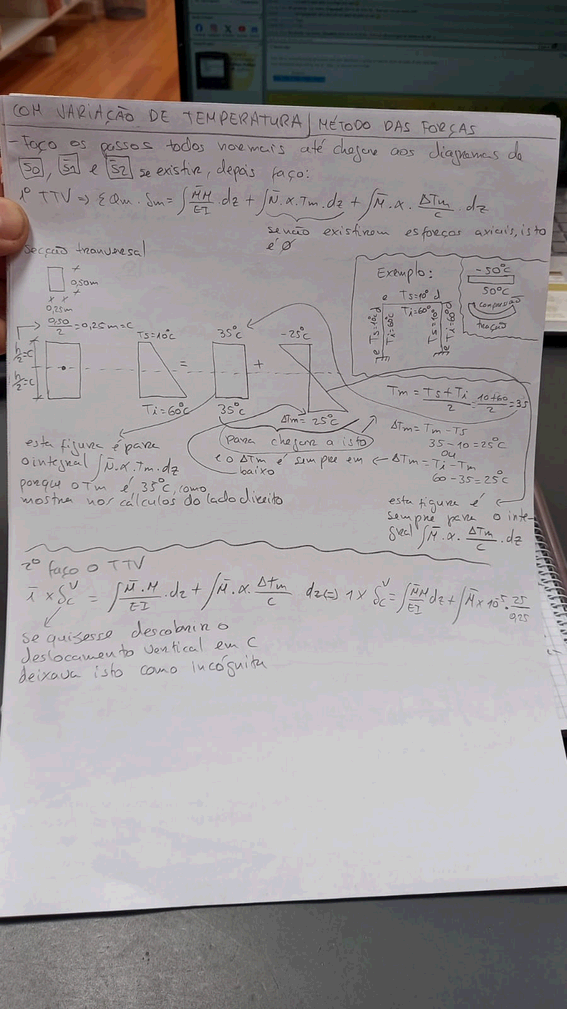 COM VARIAÇÃO DE TEMPERATURA | MÉTODO DAS FORÇAS
- Faço os passos todos normais até chegar aos diagramas de
S0, S̄1 e S̄2 se existir, depois faço:
1º TTV => ΣQm . δm = ∫ M̄M/EI . dz + ∫ N̄ . α . Tm . dz + ∫ M̄ . α . ΔTm/c . dz
se não existirem esforços axiais, isto
é Ø
secção transversal
0,50m
0,25m
0,50/2 = 0,25m = c
h/2 = c
h/2 = c
Ts=10ºc
Ti=60ºc
=
35ºc
35ºc
+
-25ºc
ΔTm = 25ºc
Exemplo:
e Ts=10º d
Ti=60ºc
Ts=10º
Ti=60ºc
Ts=10º
Ti=60ºc
-50ºc
50ºc
compressão
tração
Tm = Ts + Ti / 2 = 10+60 / 2 = 35
ΔTm = Tm - Ts
35 - 10 = 25ºc
ou
ΔTm = Ti - Tm
60 - 35 = 25ºc
para chegar a isto
e o ΔTm é sempre em
baixo
esta figura é para
o integral ∫ N̄ . α . Tm . dz
porque o Tm é 35ºc, como
mostra nos cálculos do lado direito
esta figura é
sempre para o inte-
gral ∫ M̄ . α . ΔTm/c . dz
2º faço o TTV
1̄ × δc^V = ∫ M̄ . M/EI . dz + ∫ M̄ . α . Δtm/c dz (=) 1 × δc^V = ∫ M̄M/EI dz + ∫ M̄ × 10^-5 . 25/0,25
se quisesse descobrir o
deslocamento vertical em C
deixava isto como incógnita